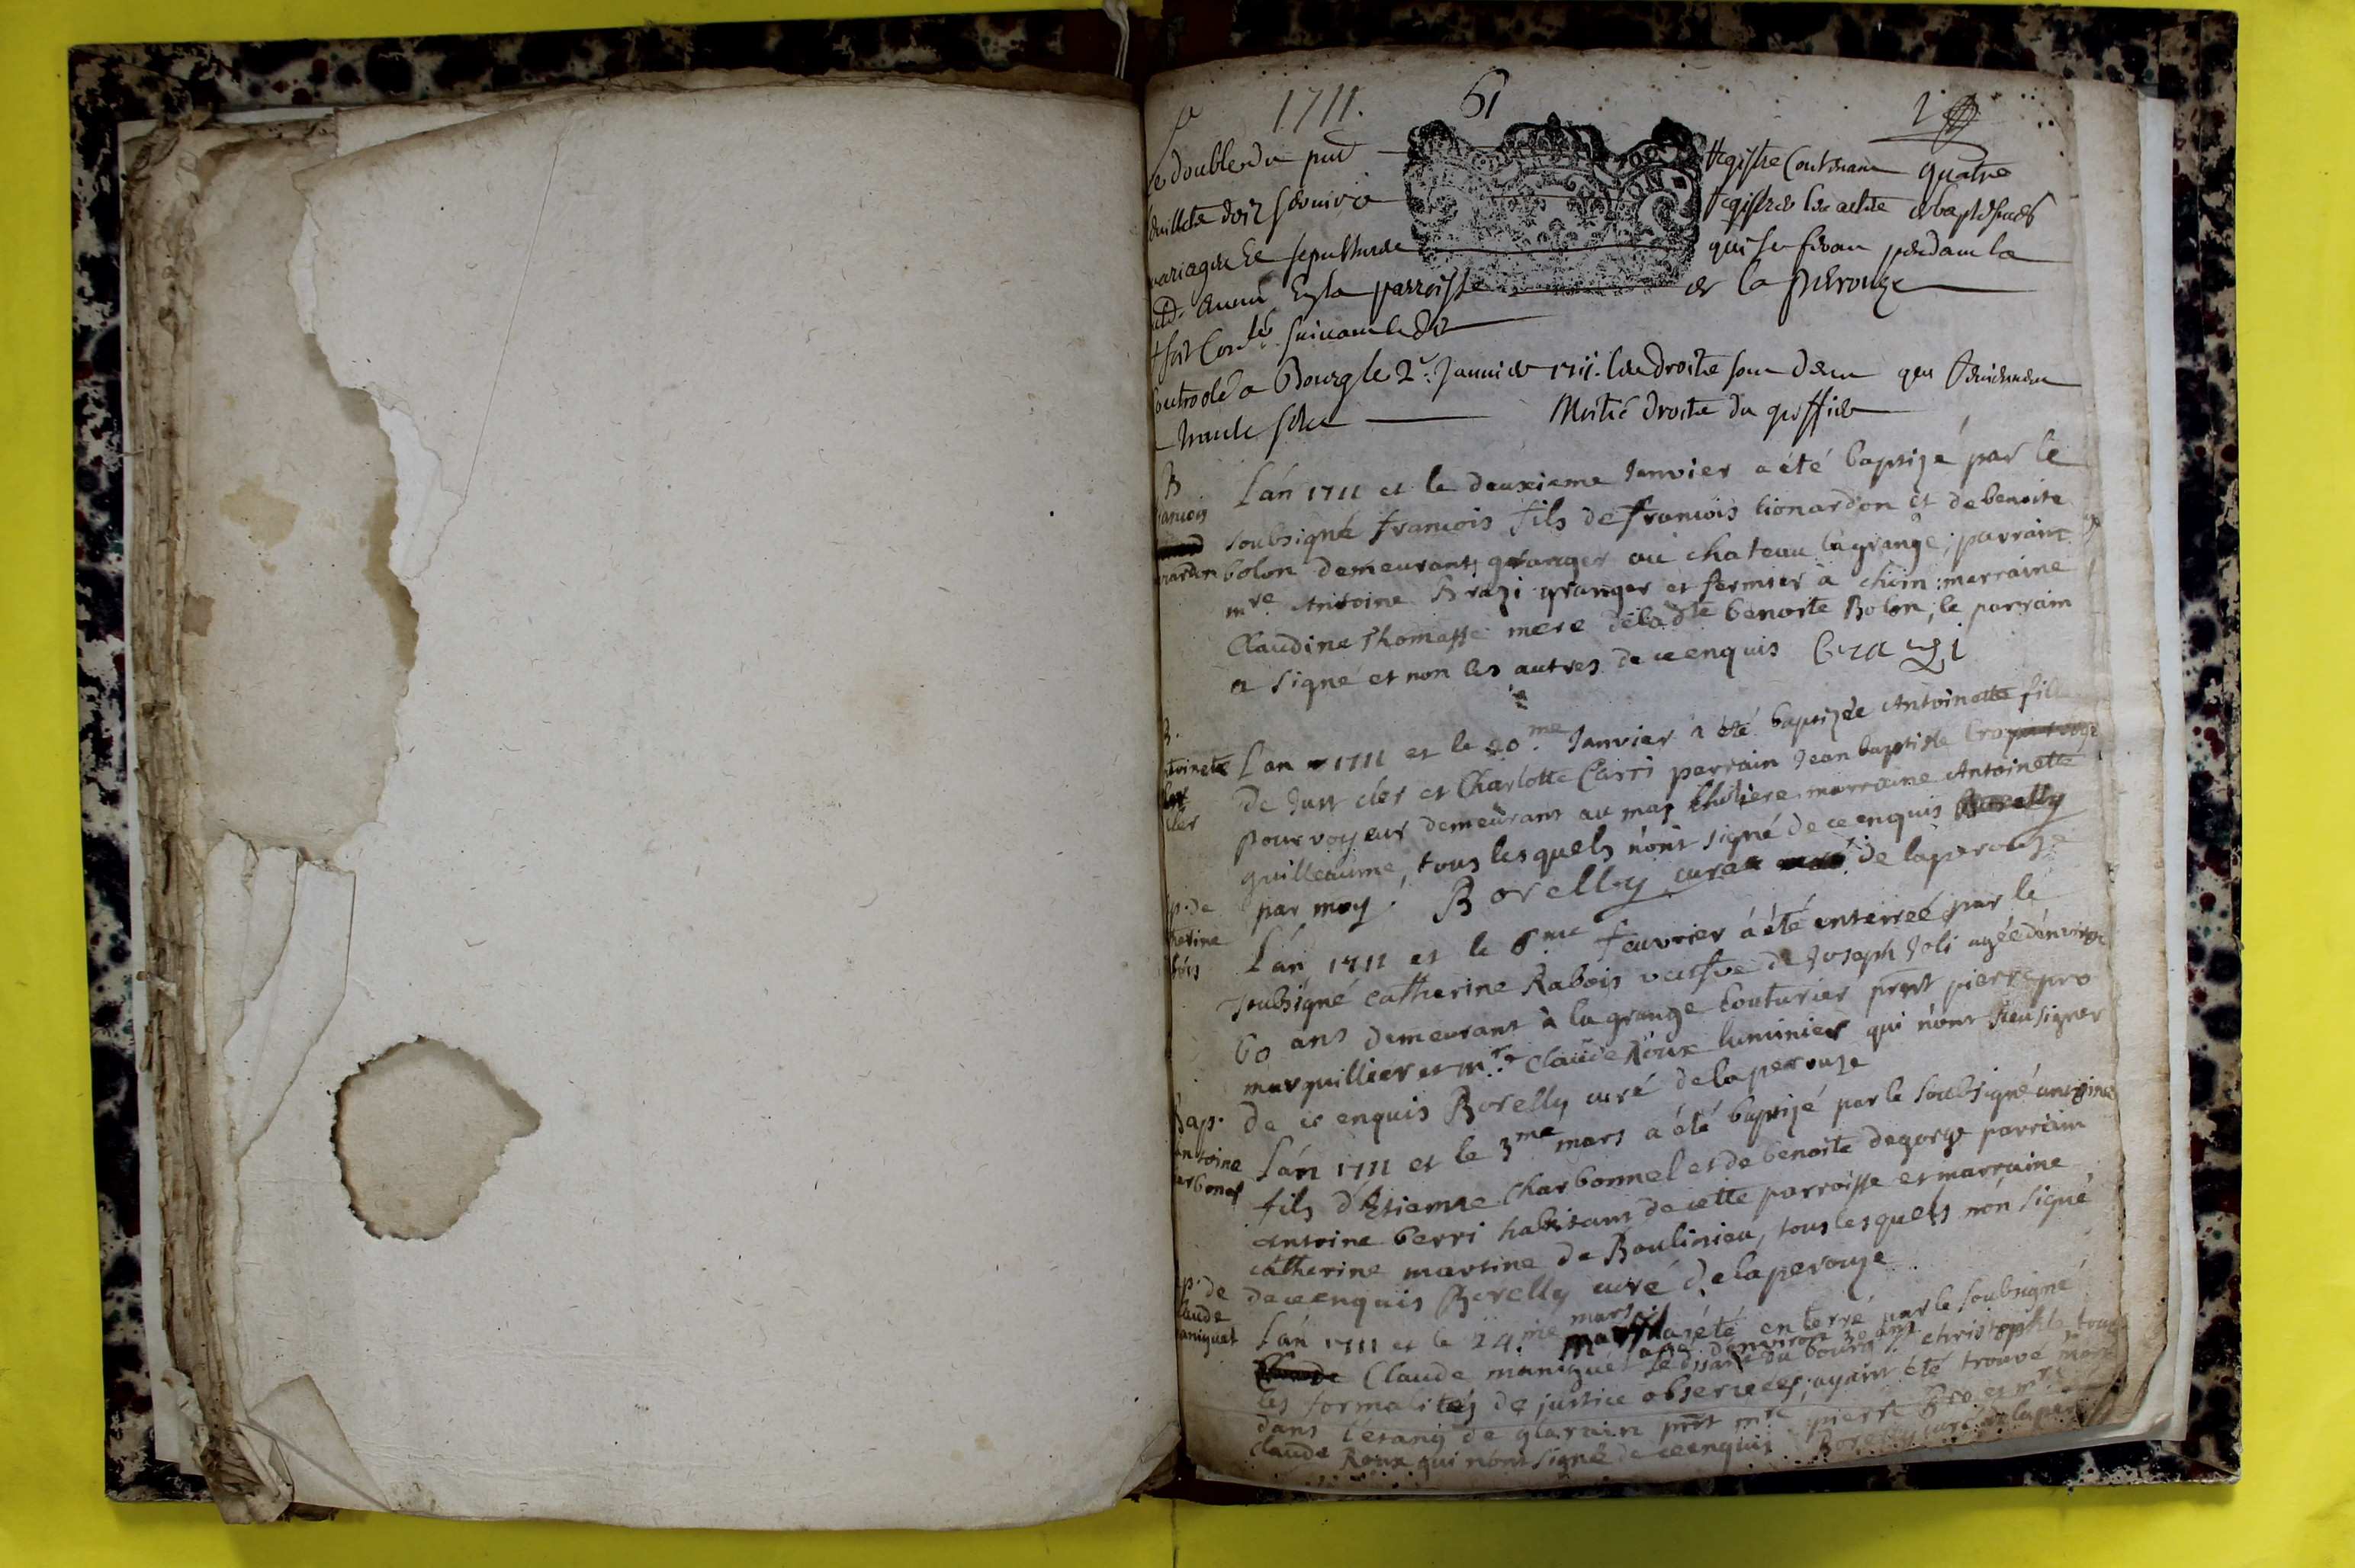 1711. 61 1
le double du pnt registre Contenant quatre
feuillets doit servir a registrer les actes de baptesmes
mariages et sepultures qui se feront pendant la
ad. année En la parroisse de la Peirouze
suivant ledit
Controolé a Bourg le 2e Janvier 1711. les droits sont deux
trente sols Moitié droits du greffier
B
francois
Lán 1711 et le deuxieme Janvier a été baptizé par le
soubsigné francois fils de francois lionardon et de benoite
bolon demeurants granger au chateau la grange; parrain
mre Antoine Brazi granger et fermier à chien: marraine
Claudine Thomasse mere de la dte benoite Bolon, le parrain
a signé et non les autres de ce enquis brazi
B.
Antoinete
cler
Lan 1711 et le 20.me Janvier a été baptizée Antoinette fille
de Just cler et Charlotte Carri parrain Jean baptiste
pourvoyeur demeurant au mas marraine Antoinette
guilleaume, tous lesquels nónt signé de ce enquis
par moy. Borelly curé de laperouze
p. de
therine
bois
Lán 1711 et le 6me feuvrier á été enterreé par le
soubsigné catherine Rabois veufve de Joseph Joli agée dénviron
60 ans demeurant à la grange Couturier prnt pierre pro
marguillier et mre claude Roux luminier qui nónt sceu signer
de ce enquis Borelly curé de laperouze
Bap.
antoine
arbonel
Lán 1711 et le 3me mars a été baptizé par le soubsigné antoine
fils d'Etienne Charbonnel et de benoite degorge parrain
Antoine berri habitant de cette parroisse et marraine
catherine martine de Boulinieu, tous lesquels nón signé
de ce enquis Borelly curé de laperouze
p. de
laude
aniquet
Lán 1711 et le 24.me mars a été enterré par le soubsigné
Claude maniquet agé dénviron 30 ans se disant du bourg St christophle toutes
les formalités de justice observeés, ayant été trouvé mort
dans l'etang de glarein prnt mre pierre Bro et mre
claude Roux qui nónt signé de ce enquis Borelly curé de laperouze